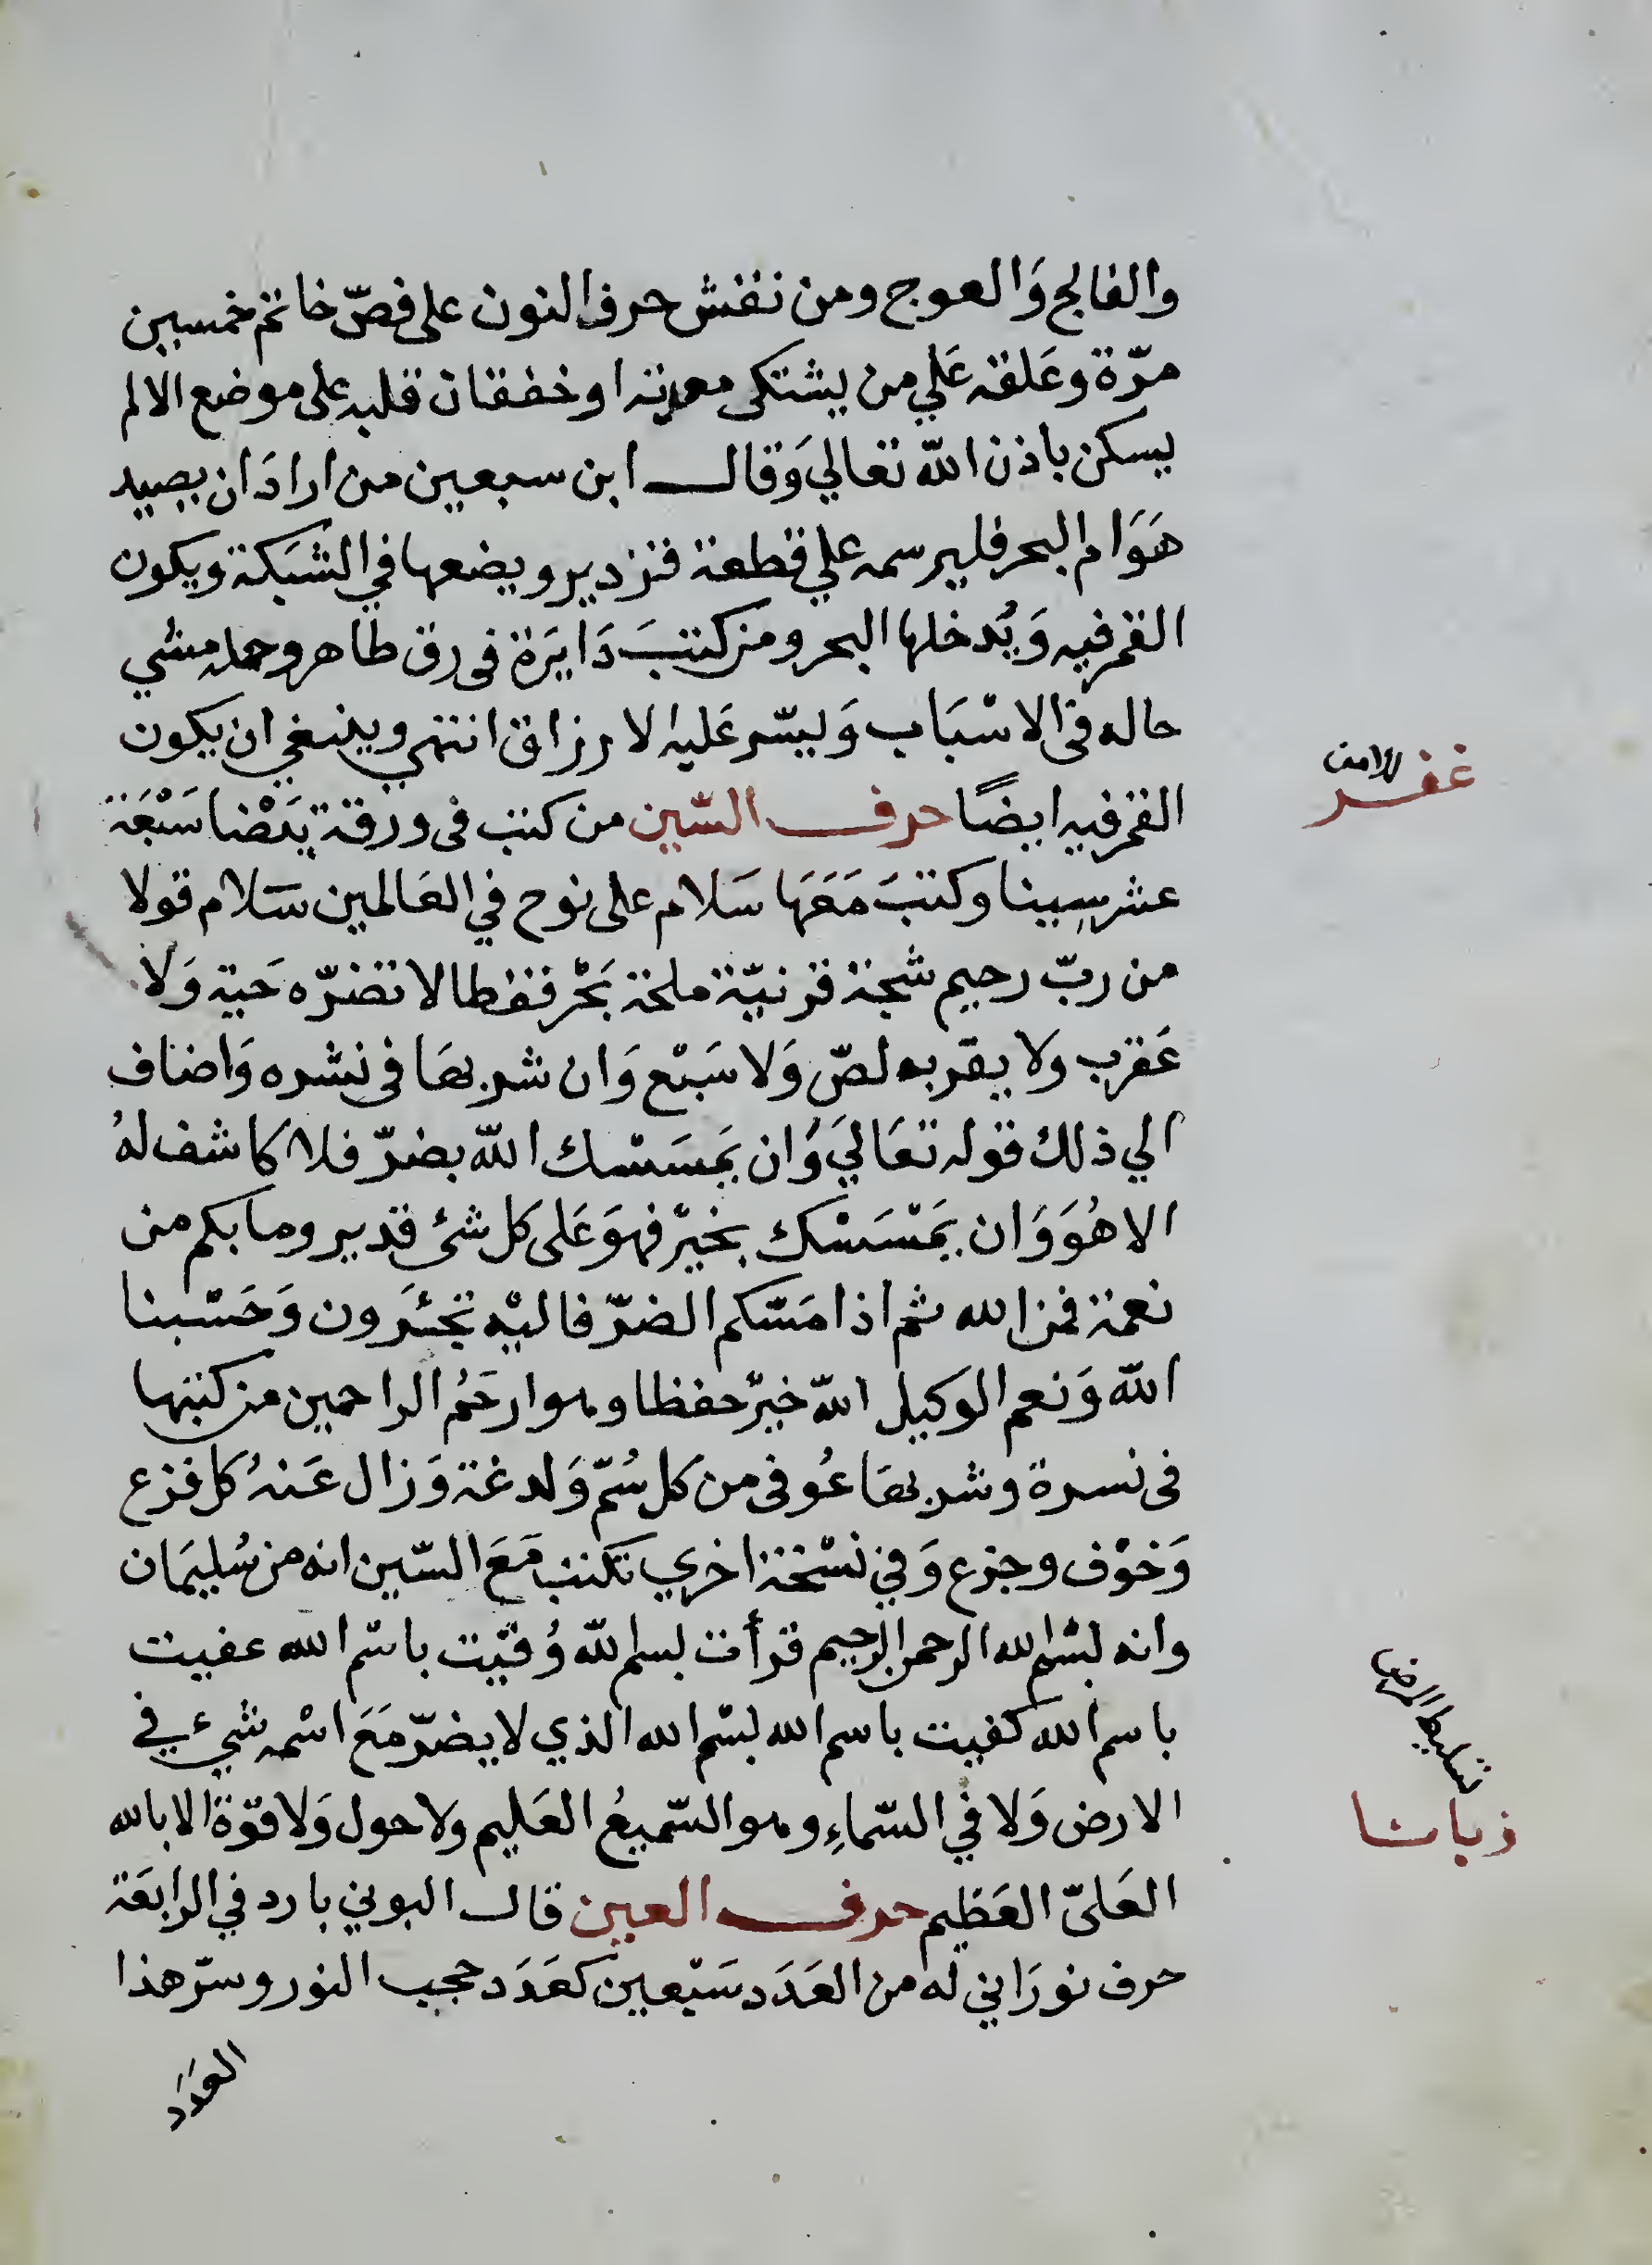 والفالج وَالعوج ومن نقش حرف النون على فصّ خاتم خمسين
مرّة وعَلقه عَلي من يشتكى معدته او خفقان قلبه على موضع الالم
يسكن باذن الله تعالي وَقال ابن سبعين من ارادَ ان يصيد
هَوَام البحر فليرسمه علي قطعة قزدير ويضعها في الشبَكة ويكون
القمر فيه وَيُدخلها البحر ومن كتبَ دَايَرة فى رق طاهر وحمله مشي
حاله فى الاسْبَاب وَليسّر عَليه الارزاق انتهي وينبغي ان يكون
القمر فيه ايضًا حرف السّين من كتب فى ورقة بَيْضا سَبْعَة
عشر سِينا وكتبَ مَعَهَا سَلام على نوح في العَالمين سَلام قولا
من ربّ رحيم شجة قرنيّة ملحة بَحْر قفطا لا تضرّه حَية وَلا
عَقرب ولا يقربه لصّ وَلا سَبْع وَان شربهَا فى نشره وَاضاف
الي ذلك قوله تعَاليَ وَان يَمسَسْك الله بضرّ فلا كاشف لهُ
الا هُوَ وَان يَمْسَسْك بخيْر فهوَ عَلى كل شئ قدير وما بكم من
نعمة فمن الله ثم اذا مَسّكم الضرّ فاليْه تجئرون وَحَسْبنا
الله وَنعم الوكيل الله خيرْ حفظا وهو ارحَمُ الراحمين من كتبها
فى نسرة وشربهَا عُوفى من كل سُمّ وَلدغة وَزال عَنهُ كل فزع
وَخوْف وجزع وَفي نسْخة اخري تكتب مَعَ السّين انه من سُليمَان
وانه بسْم الله الرحمن الرحيم قرأت بسم الله وُقيّت باسْم الله عفيت
باسم الله كفيت باسم الله بسْم الله الذي لا يضرّ مَعَ اسْمه شيء في
الارض وَلا في السّماءِ وهو السّميعُ العَليم ولا حول وَلا قوّة الا بالله
العَلىّ العَظيم حرف العين قال البوني بارد في الرابعَة
حرف نورَاني له من العَدَد سَبْعين كعَدَد حجب النور وسرّ هذا
العدَد
غفر
تسليط المرض